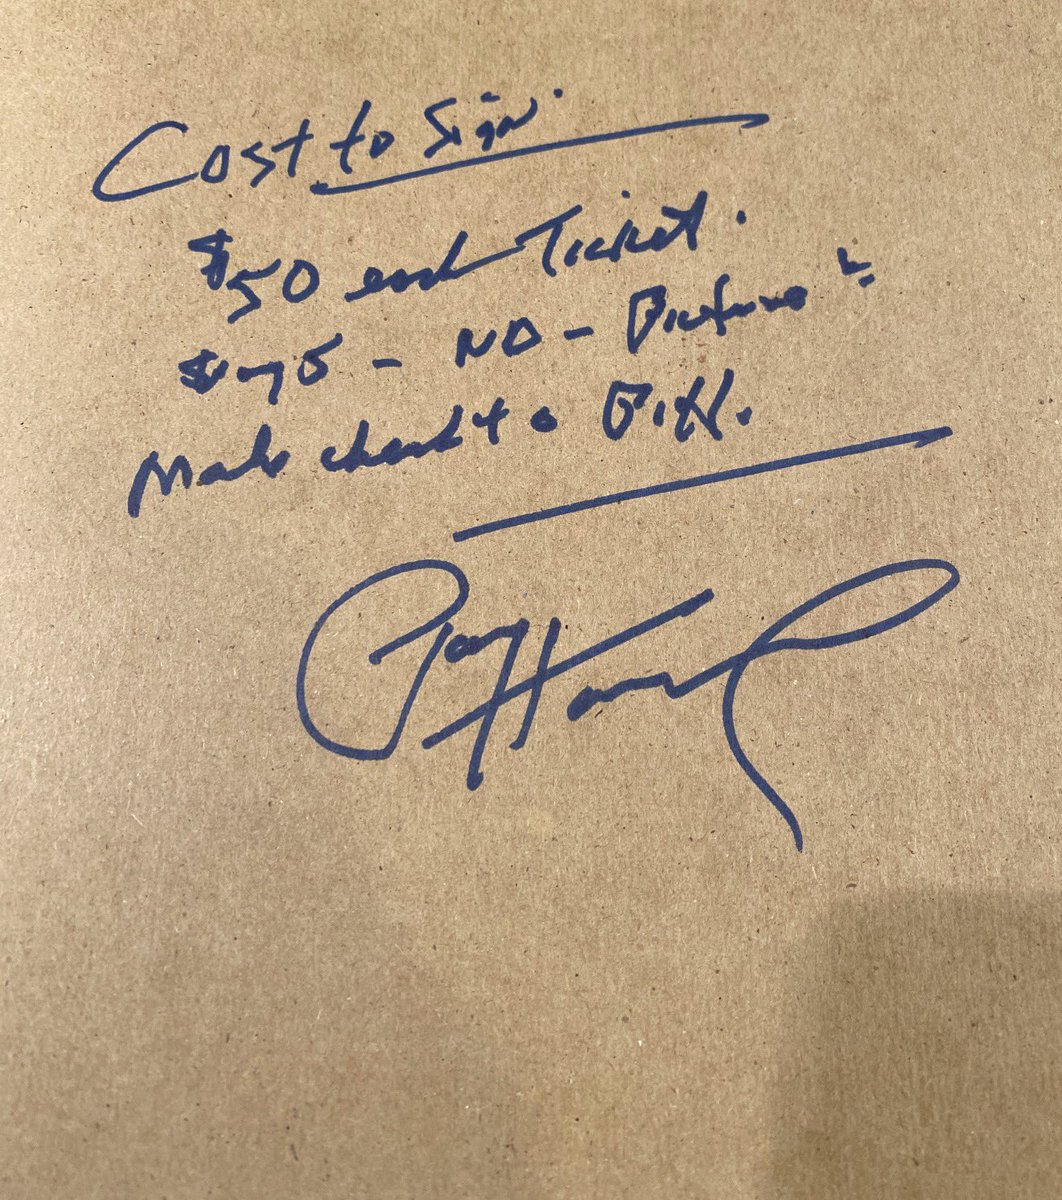 Cost to Sign.
$50 each Ticket.
$75 - NO - Picture
Make check to